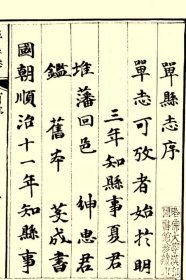 單縣志序
單志可攷者始於明
三年知縣事夏君
維藩回邑紳忠君
鑑舊本芟成書
國朝順治十一年知縣事